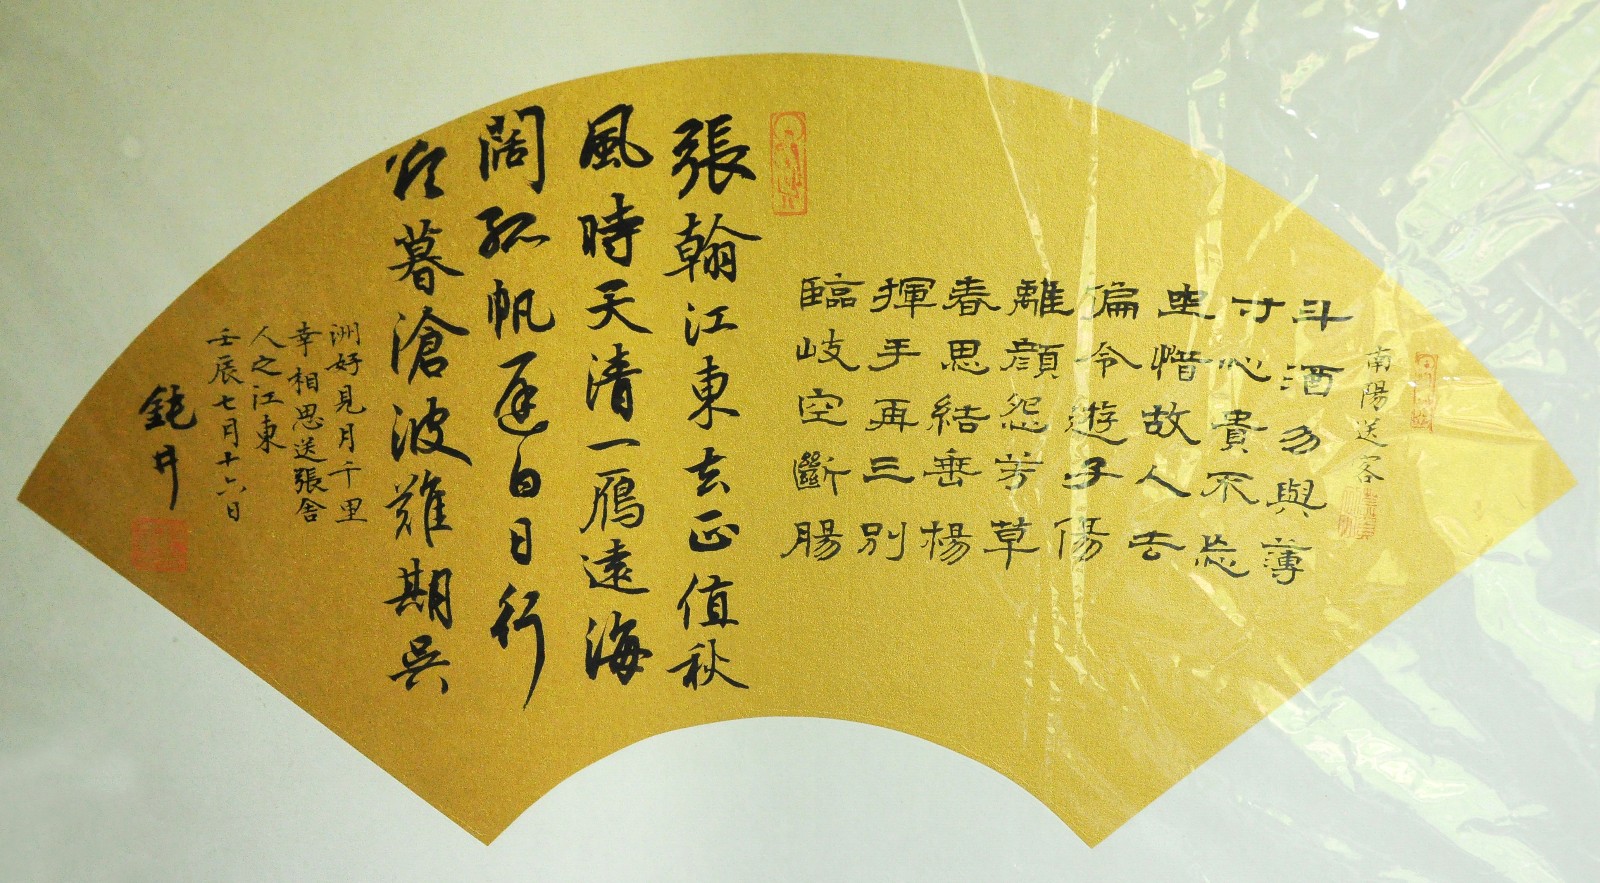 南陽送客
斗酒勿與薄
寸心貴不忘
坐惜故人去
偏令遊子傷
離顏怨芳草
春思結垂楊
揮手再三別
臨岐空斷腸
張翰江東去正值秋
風時天清一鴈遠海
闊孤帆遲白日行
欲暮滄波難期吳
洲好見月千里
幸相思送張舍
人之江東
壬辰七月十六日
鈍